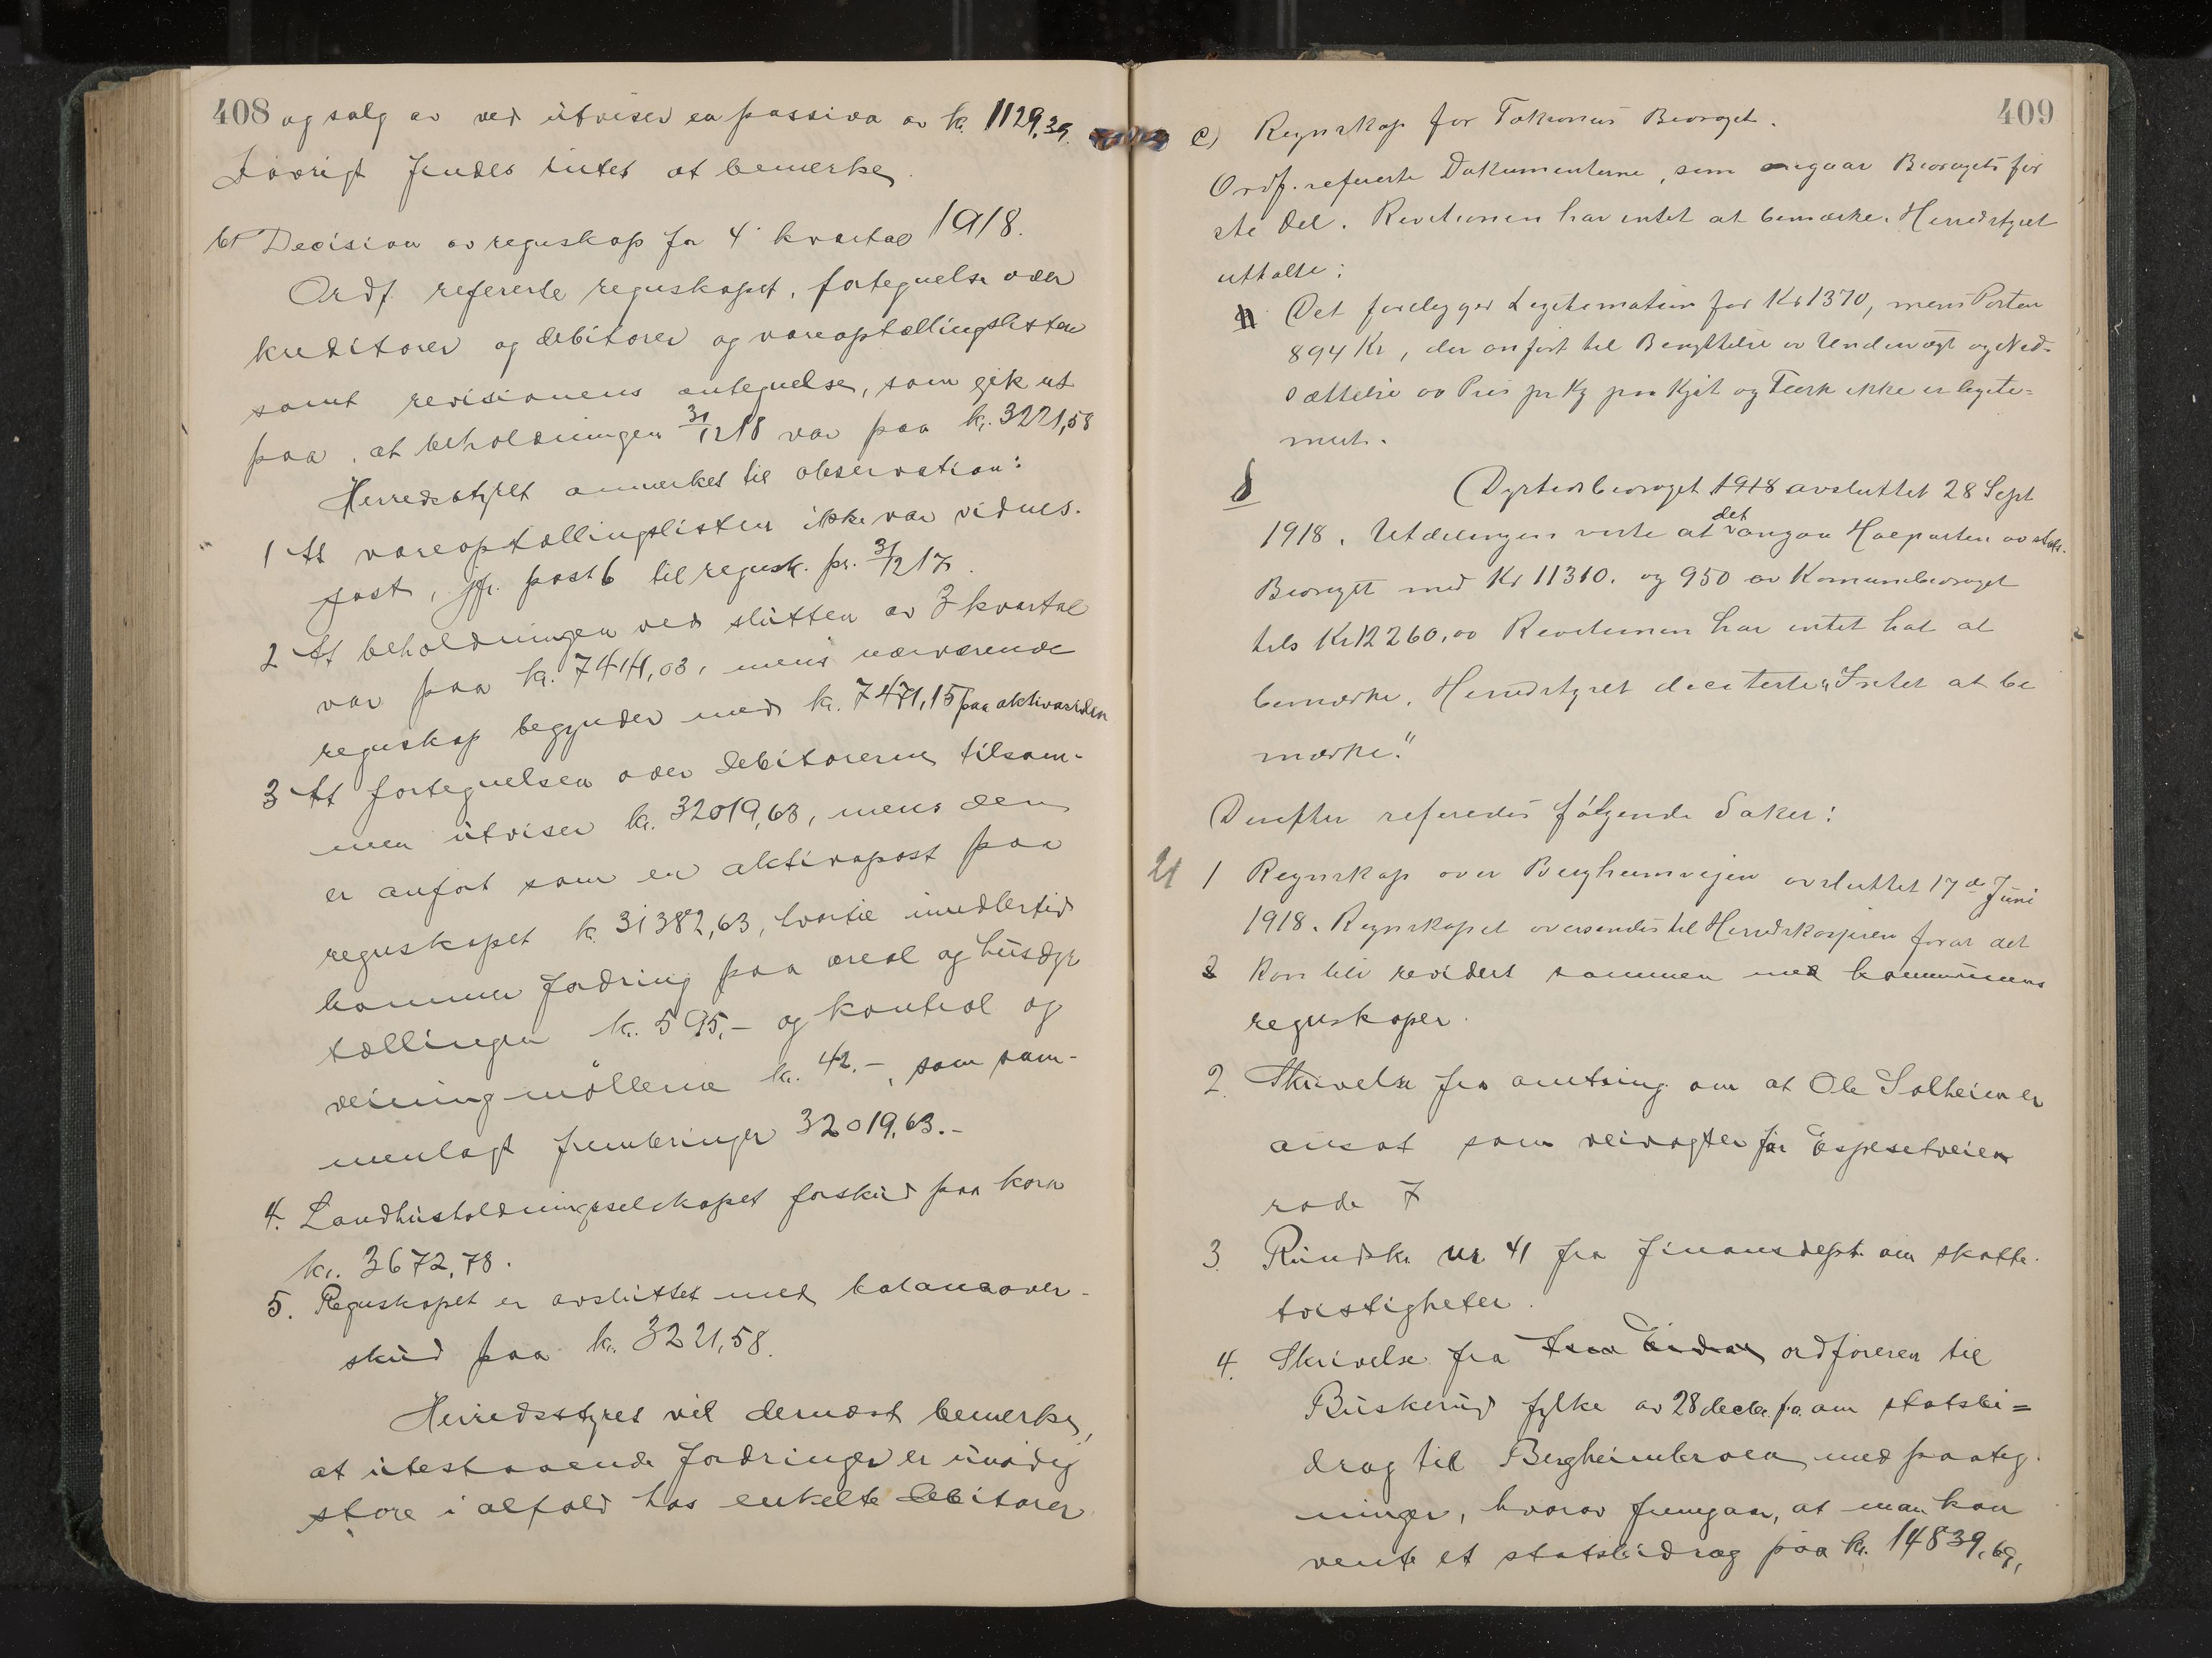 408 og salg av ved utviser en passiva av k. 1129,39.
Iøvrigt findes intet at bemerke.
b) Decision av regnskap for 4. kvartal 1918.
Ordf. refererte regnskapet, fortegnelse over
kreditorer og debitorer og vareoptællingslisten
samt revisionens antegnelse, som gik ut
paa, at beholdningen 31/12 18 var paa kr. 3221,58
Herredsstyret anmerket til observation:
1 At vareoptællingslisten ikke var vidnes-
fast, jfr. post 6 til regnsk. pr. 31/12 17.
2 At beholdningen ved slutten av 3 kvartal
var paa kr. 7441,03, mens nærværende
regnskap begynder med kr. 7471,15 paa aktivasiden
3 At fortegnelsen over debitorerne tilsam-
men utviser kr. 32019,63, mens den
er anført som en aktivapost paa
regnskapet k. 31382,63, hvortil imidlertid
kommer fordring paa areal og husdyr
tællingen kr. 595,- og kontrol og
veining møllerne kr. 42.-, som sam-
menlagt frembringer 32019,63.-
4. Landhusholdningsselskapet forskud paa korn
kr. 3672,78.
5. Regnskapet er avsluttet med balanseover-
skud paa kr. 3221,58.
Herredsstyret vil dernæst bemerke,
at utestaaende fordringer er unødig
store i alfald hos enkelte debitorer
409
c) Regnskap for Bevroget.
Ordf. refererte Dokumenterne, som angaar Bevrogets før
ste Del. Revitionen har intet at bemærke. Herredstyret
uttalte:
Det foreligger Legitimation for Kr 1370, mens Posten
894 Kr, der anført til Benyttelse av Undervægt og Ned-
sættelse av Pris pr Kg paa Kjøt og Flesk ikke er legiti-
mert.
d Dyrtidsbevroget 1918 avsluttet 28 Sept
1918. Utdelingen viste at det angaa Halparten av stats.
Bevroget med Kr 11310. og 950 av Komunebevroget
tils Kr 12260,00 Revitionen har intet hat at
bemærke. Herredstyret deciterte "Intet at be
mærke."
Derefter referedes følgende Saker:
21 1 Regnskap over Bergheimvejen avsluttet 17de Juni
1918. Regnskapet oversendes til Herredskasseren forat det
2 kan bli revidert sammen med kommunens
regnskaper.
2. Skrivelse fra amtsing. om at Ole Solheim er
ansat som veivogter for Espesetveien
rode 7
3. Rundskr. nr 41 fra finansdept. om skatte-
tvistigheter.
4. Skrivelse fra ordføreren til
Buskerud fylke av 28 decbr. f.a. om statsbi=
drag til Bergheimbroen med paateg-
ninger, hvorav fremgaar, at man kan
vente et statsbidrag paa kr. 14839,69,